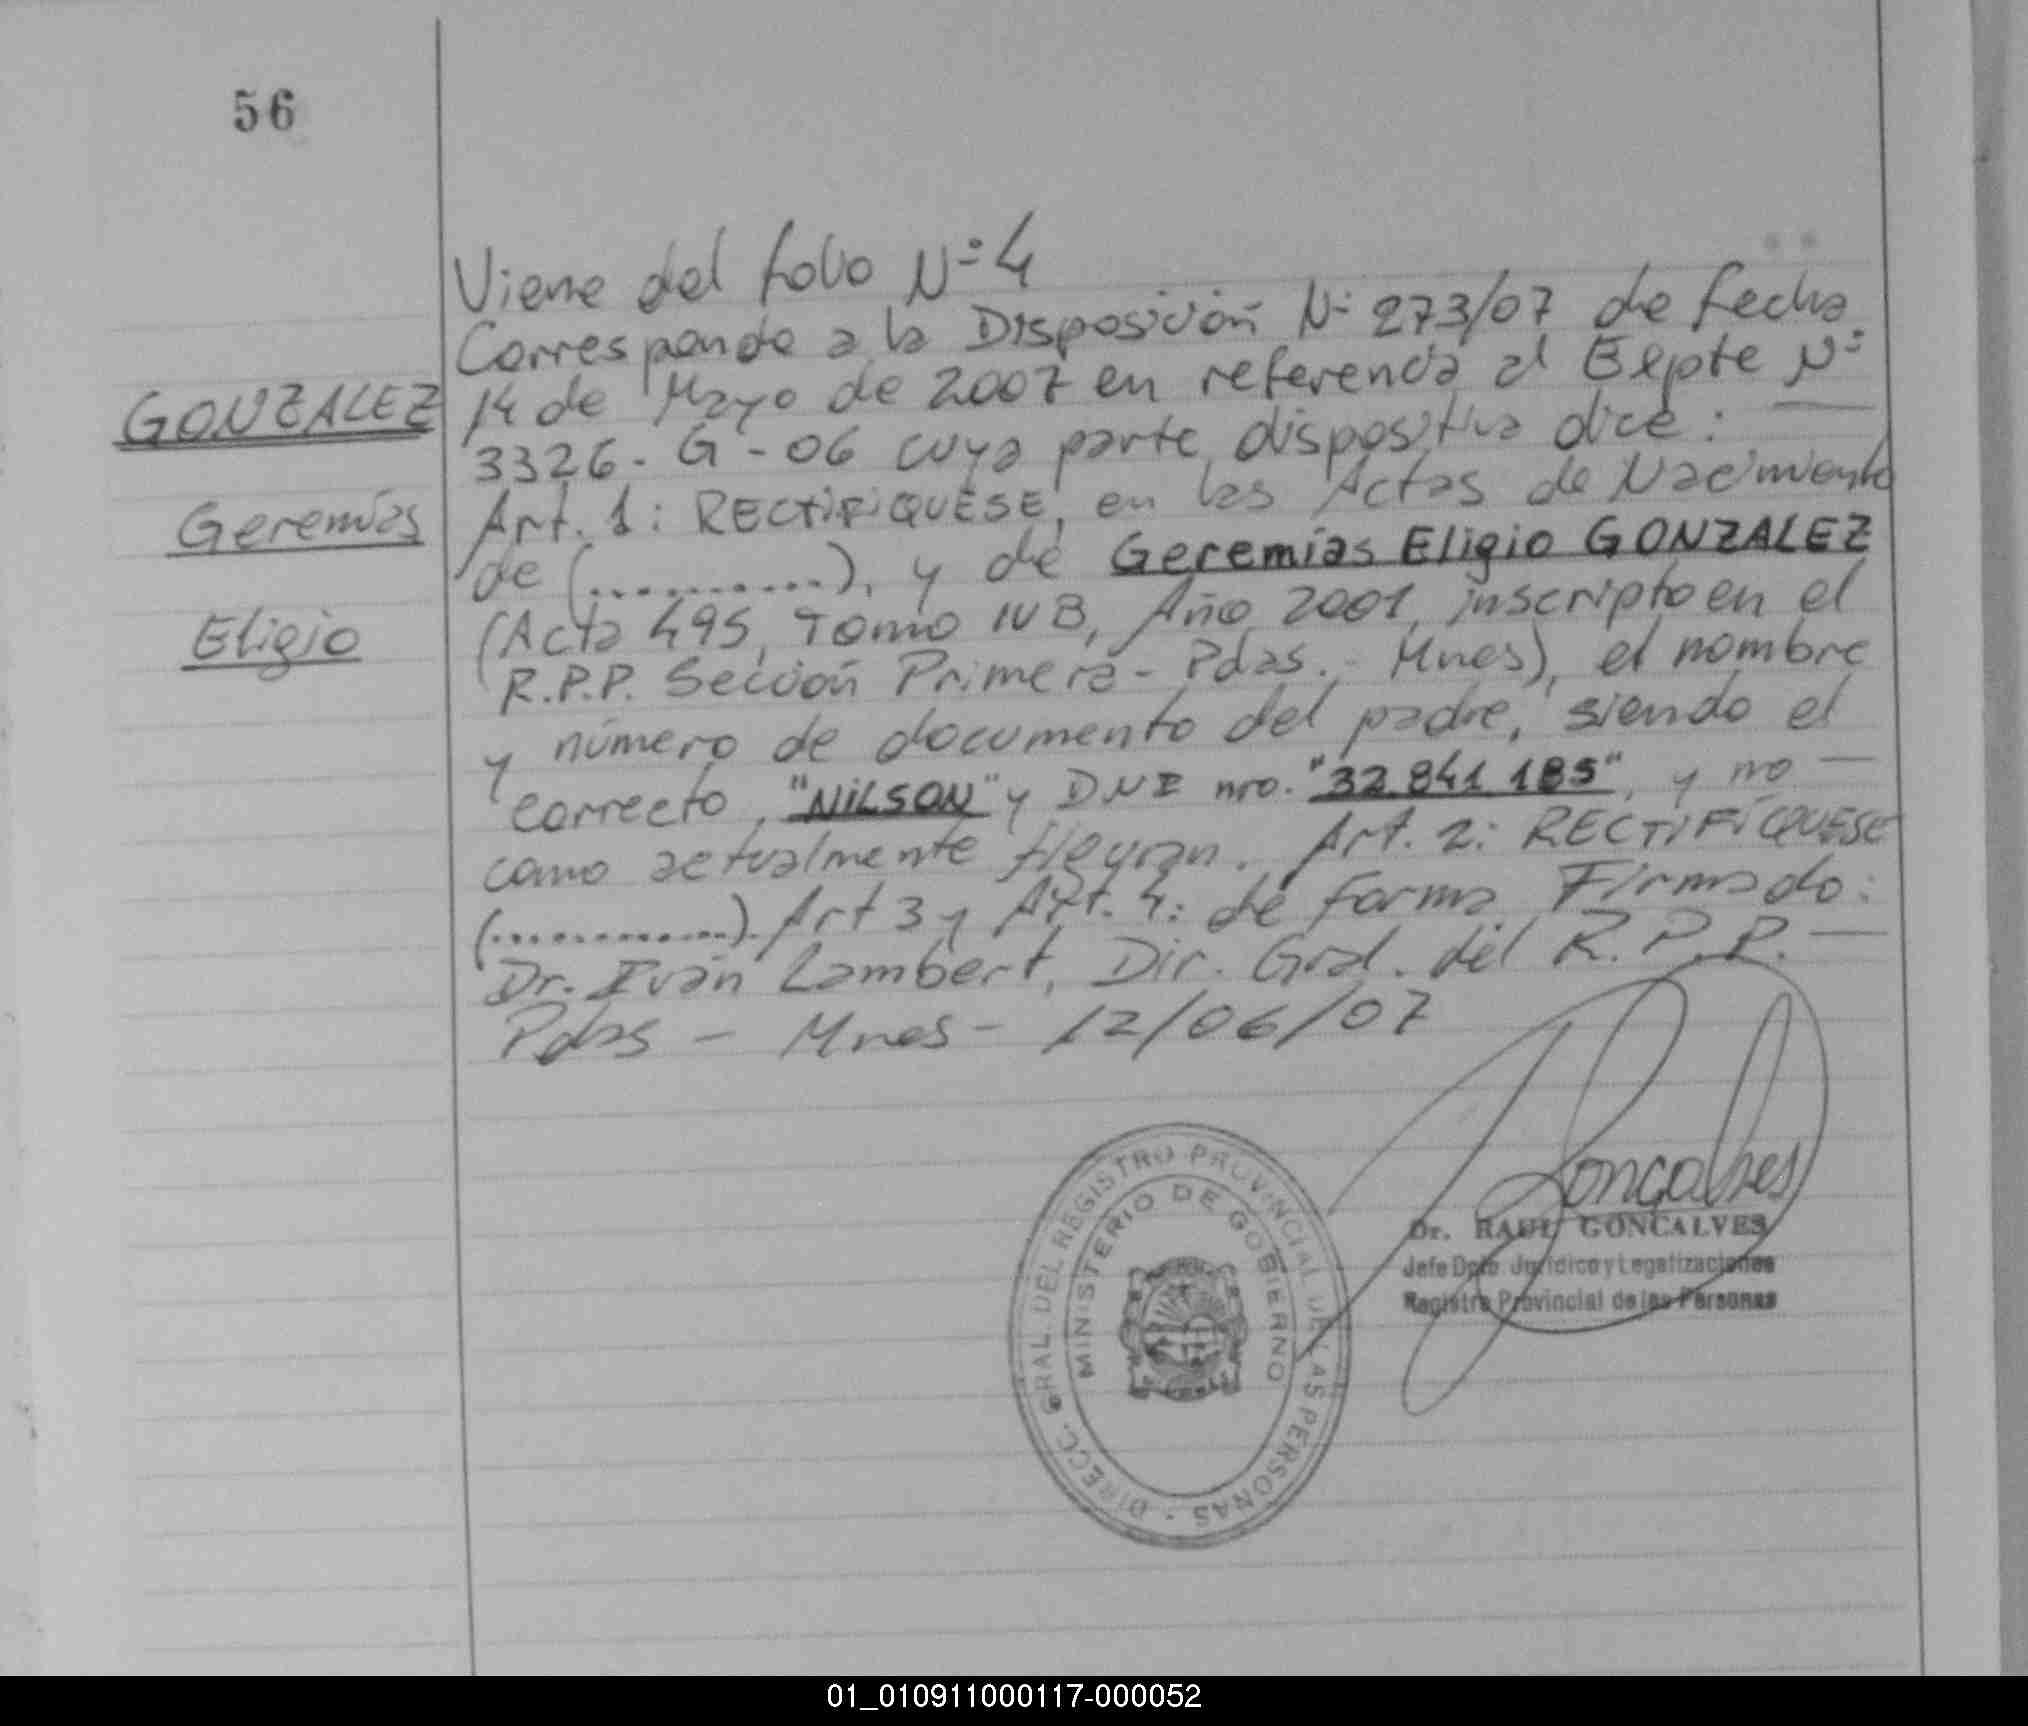 56
GONZALEZ
Geremías
Eligio
Viene del folio Nº 4
Corresponde a la Disposición Nº 273/07 de fecha
14 de Mayo de 2007 en referencia al Expte Nº
3326-G-06 cuya parte dispositiva dice:
Art. 1: RECTIFIQUESE, en las Actas de Nacimiento
de (...........), y de Geremías Eligio GONZALEZ
(Acta 495, Tomo IV B, Año 2001, inscripto en el
R.P.P. Sección Primera - Pdas. - Mnes), el nombre
y número de documento del padre, siendo el
correcto, "NILSON" y DNI nro. "32.841.185", y no —
como actualmente figuran. Art. 2: RECTIFÍQUESE
(.............). Art 3 y Art. 4: de forma. Firmado:
Dr. Iván Lambert, Dir. Gral. del R.P.P. —
Pdas - Mnes - 12/06/07
DIRECC. GRAL. DEL REGISTRO PROVINCIAL DE LAS PERSONAS
MINISTERIO DE GOBIERNO
Goncalves
Dr. RAUL GONCALVES
Jefe Dpto. Jurídico y Legalizaciones
Registro Provincial de las Personas
01_010911000117-000052